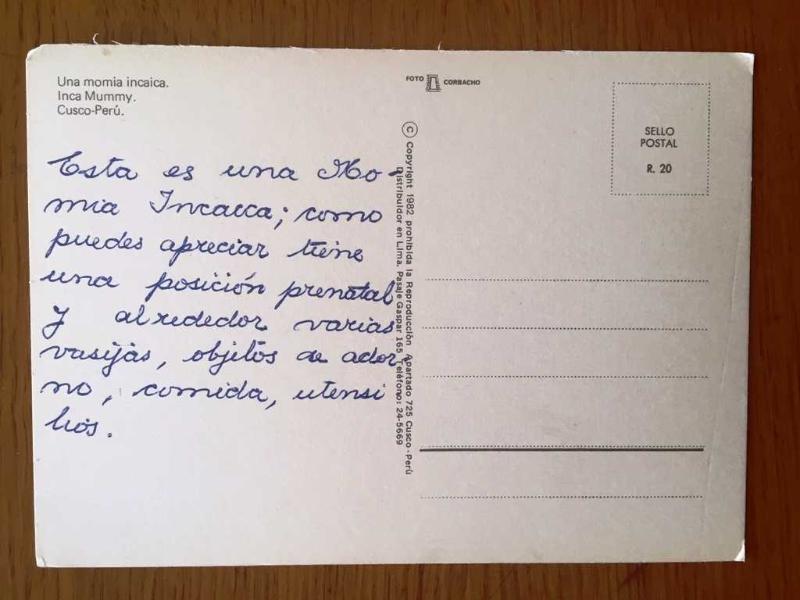 Una momia incaica.
Inca Mummy.
Cusco-Perú.
Esta es una Mo-
mia Incaica; como
puedes apreciar tiene
una posición prenatal
y alrededor varias
vasijas, objetos de ador-
no, comida, utensi
lios.
FOTO CORBACHO
© Copyright 1982 prohibida la Reproducción Apartado 725 Cusco-Perú
Distribuidor en Lima. Pasaje Gaspar 165 Teléfono: 24-5669
SELLO
POSTAL
R. 20